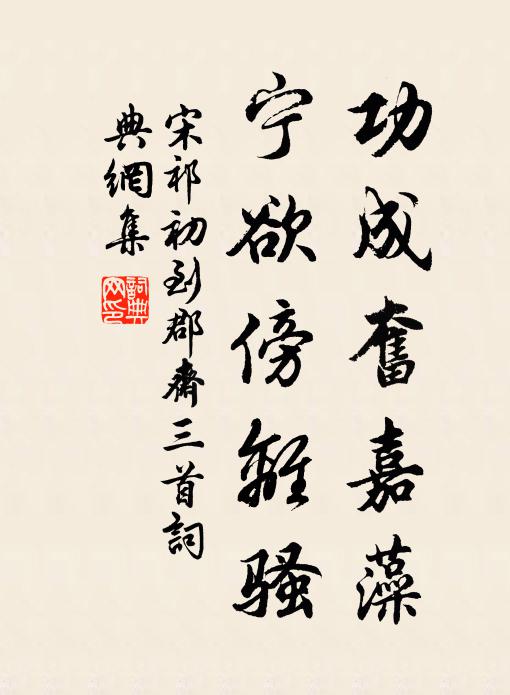 功成奮嘉藻
宁欲傍離骚
宋祁初到郡齋三首詞
典網集
詞典
网印